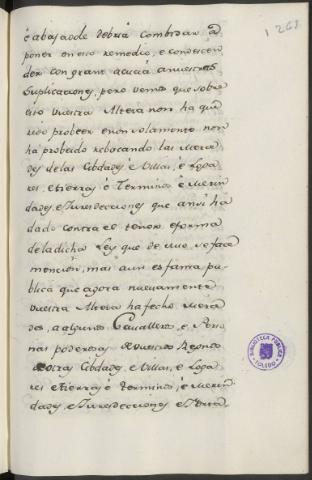 1268
é abajaode debria combidar á
poner en eso remedio, e condescen
der con grant acucia á nuestras
Suplicaciones, pero vemos que sobre
eso Vuestra Alteza non ha que
rido probeer é non solamente non
há probeido rebocando las Merze
des de las Cibdades é Villas, é Loga
res, e tierras é Terminos é Merin
dades, e Juresdicciones que ansi há
dado contra el tenor e forma
de la dicha Ley que de suso se face
mencion, mas aun es fama pu
blica que agora nuevamente
Vuestra Alteza ha fecho Merze
des, a algunos Cavalleros, e, Perso
nas poderosas de vuestros Regnos
de otras Cibdades, e Villas, e Loga
res e tierras é terminos, é merin
dades, e Juresdicciones, e
BIBLIOTECA PUBLICA
TOLEDO